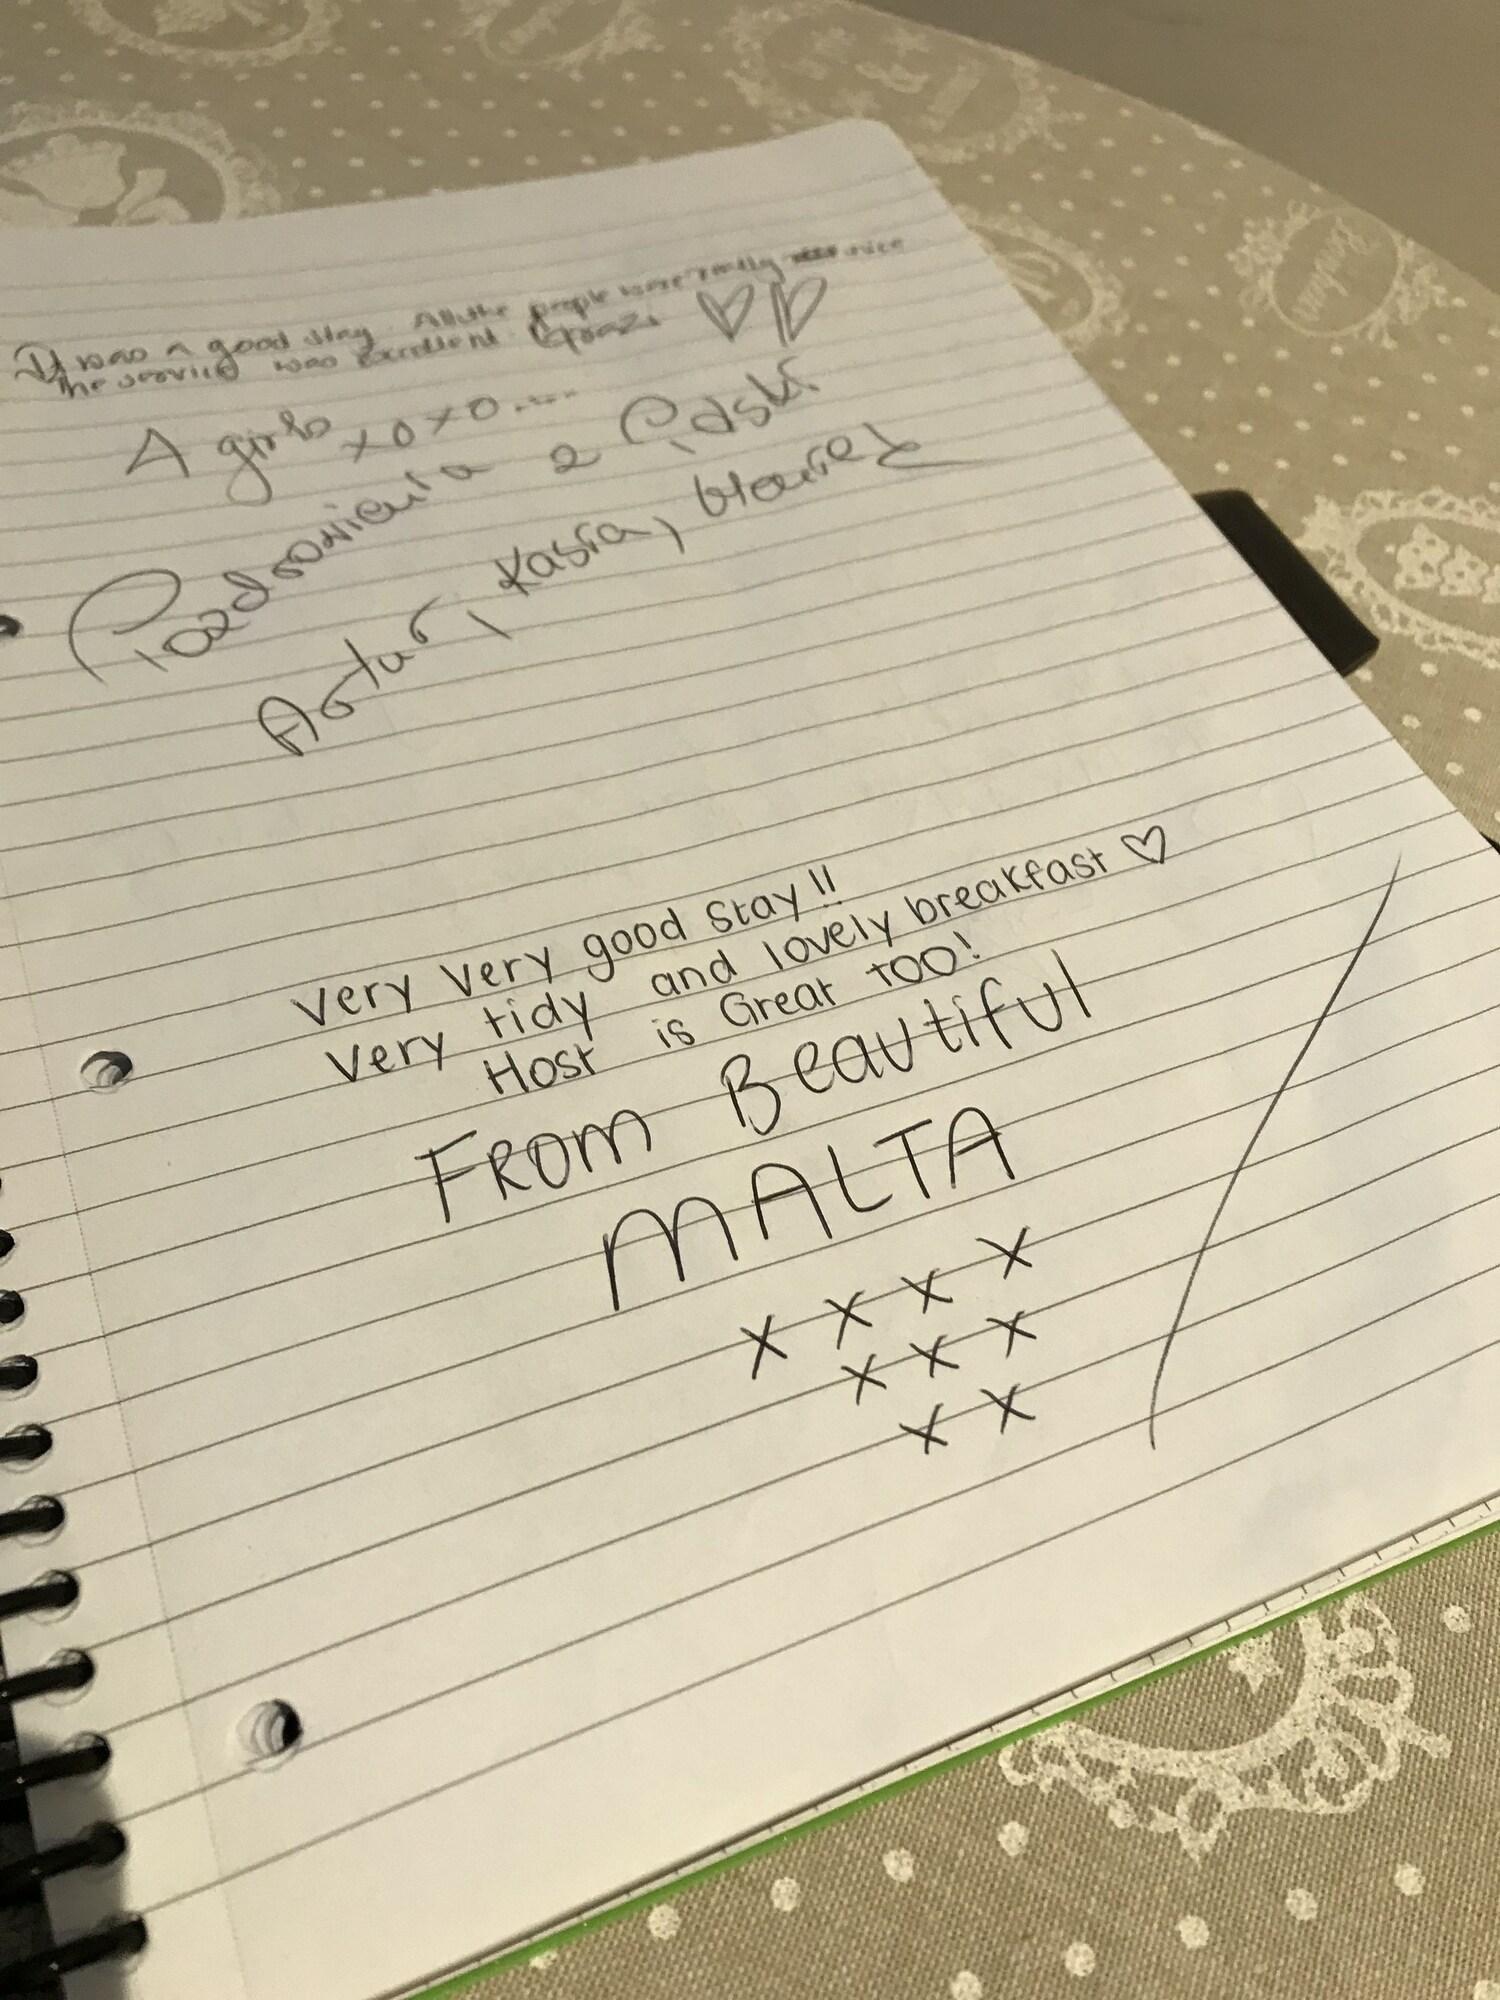 It was a good stay. All the people were really nice
the service was excellent. Grazi
A girls xoxo....
Pozdrowienia z Polski
Artur, Kasia,
Very very good stay!!
very tidy and lovely breakfast ♡
Host is Great too!
FROM Beautiful
MALTA
x x x x
x x x
x x